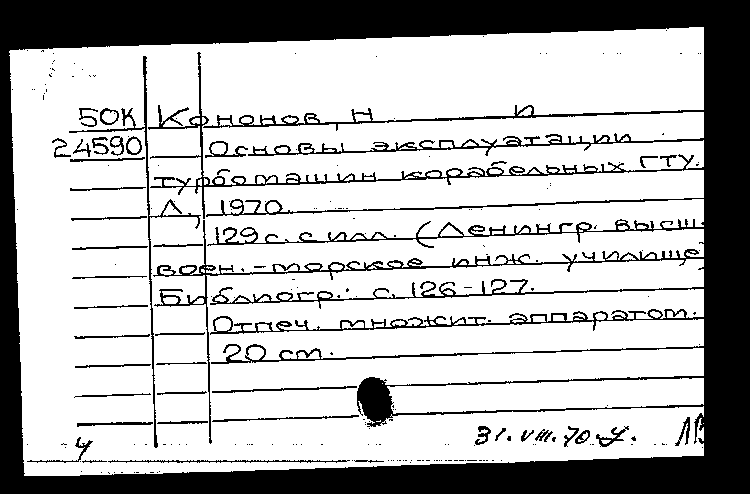 50К Кононов, Н И
24590 Основы эксплуатации
турбомашин корабельных ГТУ.
Л., 1970.
129 с. с илл. (Ленингр. высш.
воен.-морское инж. училище)
Библиогр.: с. 126-127.
Отпеч. множит. аппаратом.
20 см.
4 31.VIII.70.